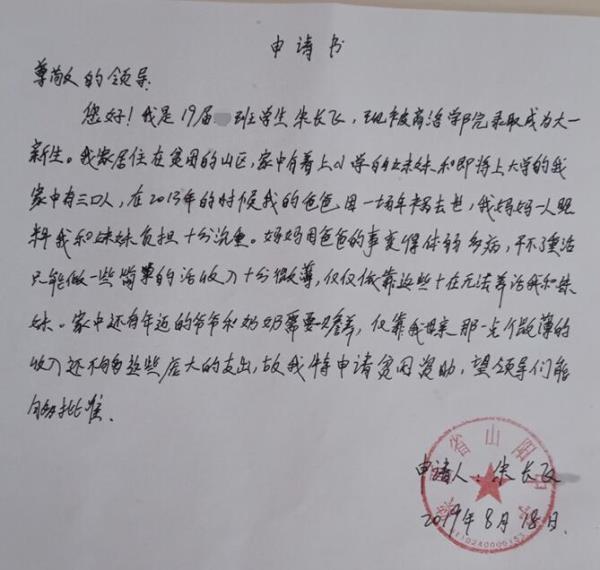 申请书
尊敬的领导:
您好！我是19届 班学生朱长飞，现被商洛学院录取成为大一
新生。我家居住在贫困的山区，家中有着上小学的妹妹和即将上大学的我
家中有三口人，在2013年的时候我的爸爸因一场车祸去世，我妈妈一人照
料我和妹妹负担十分沉重。妈妈因爸爸的事变得体弱多病，干不了重活
只能做一些简单的活收入十分微薄，仅仅依靠这些十在无法养活我和妹
妹。家中还有年迈的爷爷和奶奶需要赡养，仅靠我母亲那一点个微薄的
收入还不够这些庞大的支出，故我特申请贫困资助，望领导们能
够批准.
省山阳中学
申请人：朱长飞
2019年8月18日.